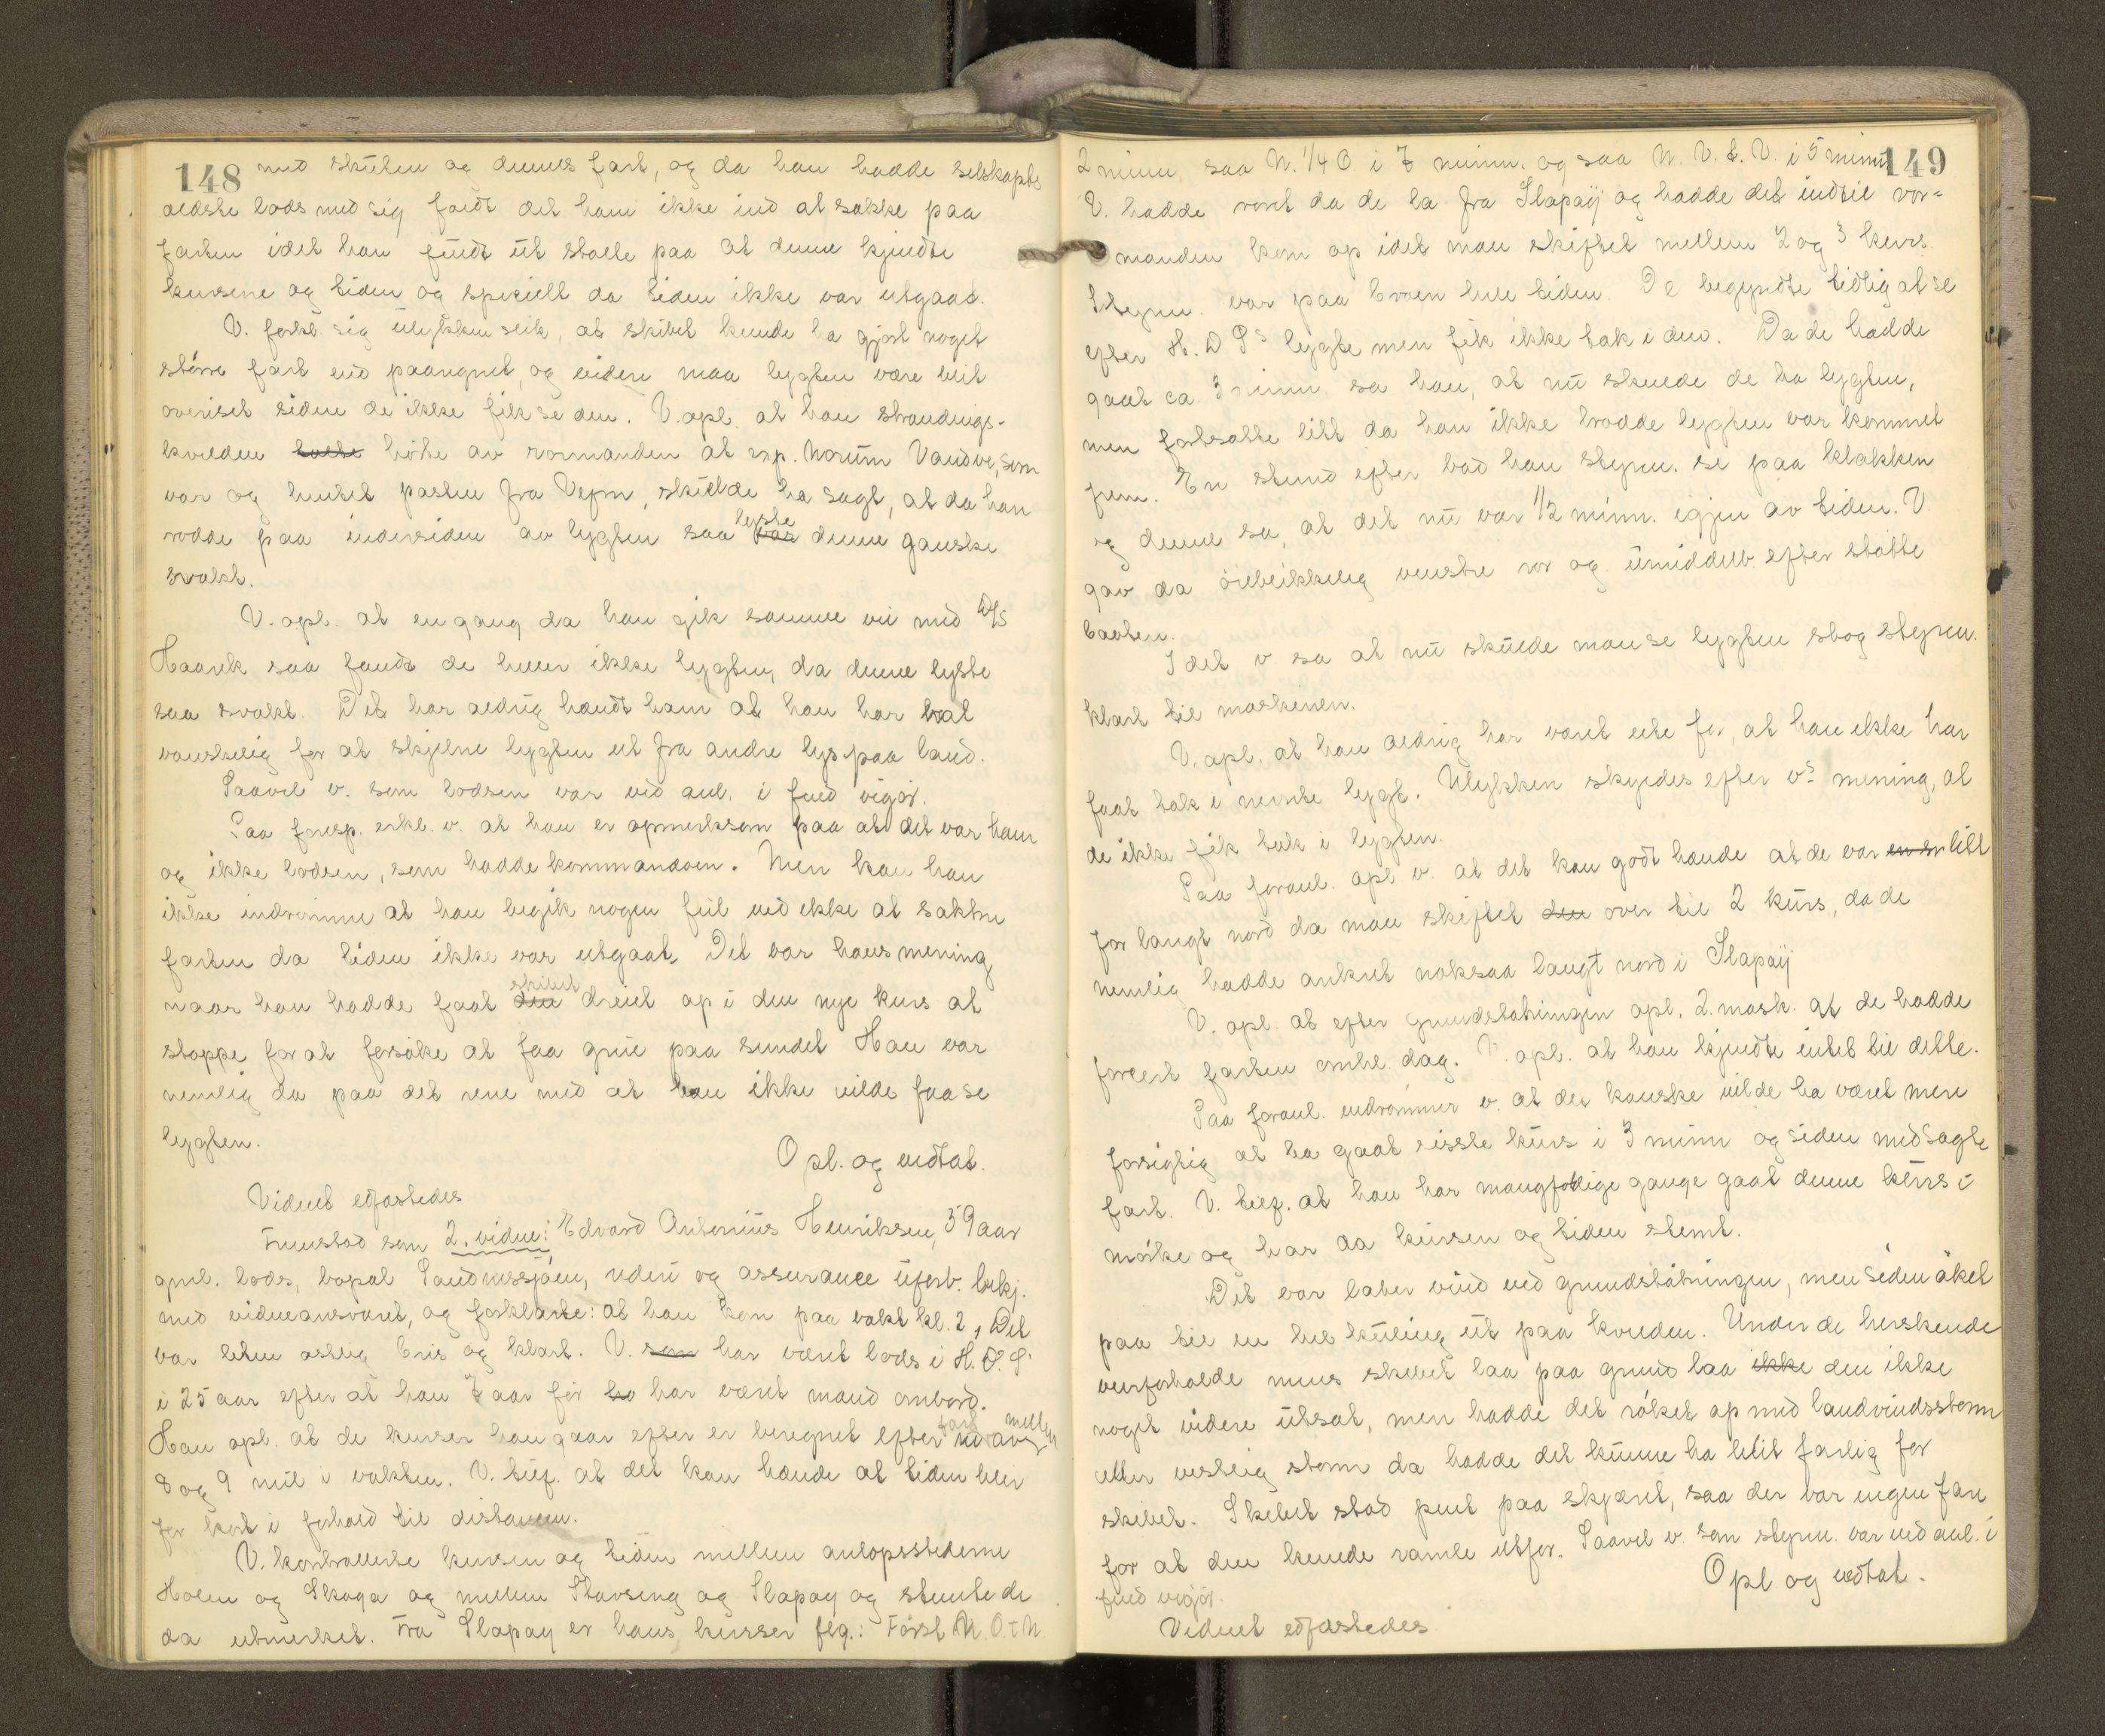 148
med skuten og dennes fart, og da han hadde selskapets
ældste lods med sig faldt det ham ikke ind at sakke paa
farten idet han fuldt ut stolte paa at denne kjendte
kursene og tiden og specielt da tiden ikke var utgaat.
V. forkl. sig ulykken slik, at skibet kunde ha gjort noget
større fart end paaregnet, og videre maa lygten være blit
overiset siden de ikke fik se den. V. opl. at han strandings-
kvelden hørte av rormanden at exp. Norum Vandve, som
var og hentet posten fra Vefsn, skulde ha sagt, at da han
rodde paa indersiden av lygten saa lyste denne ganske
svakt.
V. opl. at en gang da han gik samme vei med D/S
Haarek saa fandt de heller ikke lygten, da denne lyste
saa svakt. Det har aldrig hændt ham at han har hat
vanskelig for at skjelne lygten ut fra andre lys paa land.
Saavel v. som lodsen var ved anl. i fuld vigør.
Paa foresp. erkl. v. at han er opmerksom paa at det var ham
og ikke lodsen, som hadde kommandoen. Men kan han
ikke indrømme at han begik nogen feil ved ikke at saktne
farten da tiden ikke var utgaat. Det var hans mening
naar han hadde faat skibet dreiet op i den nye kurs at
stoppe for at forsøke at faa greie paa sundet Han var
nemlig da paa det rene med at han ikke vilde faa se
lygten.
Opl. og vedtat.
Vidnet edfæstedes
Fremstod som 2. vidne: Edvard Antonius Henriksen, 59 aar
gml. lods, bopæl Sandnessjøen, rederi og assurance uforb. bekj.
med vidneansvaret, og forklarte: at han kom paa vakt kl. 2, Det
var liten østlig bris og klart. V. har været lods i H. D. S.
i 25 aar efter at han 7 aar før har været mand ombord.
Han opl. at de kurser han gaar efter er beregnet efter fart mellem
8 og 9 mil i vakten. V. tilf. at det kan hænde at tiden blir
for kort i forhold til distansen.
V. kontrollerte kursen og tiden mellem anløpsstederne
Holm og Skoga og mellem Stavseng og Slapøy og stemte de
da utmerket. Fra Slapøy er hans kurser flg.: Først N. O. t N
149
2 minn, saa N. 1/4 O i 7 minn. og saa N. V. t. V. i 5 minn
V. hadde roret da de la fra Slapøy og hadde det indtil ror-
manden kom op idet man skiftet mellem 2 og 3 kurs.
Styrm. var paa broen hele tiden. De begyndte tidlig at se
efter H. D Ps lygte men fik ikke tak i den. Da de hadde
gaat ca 3 minn sa han, at nu skulde de ha lygten,
men fortsatte litt da han ikke trodde lygten var kommet
frem. En stund efter bad han styrm. se paa klokken
og denne sa, at det nu var 1/2 minn. igjen av tiden. V.
gav da øieblikkelig venstre ror og umiddelb. efter støtte
baaten.
I det v. sa at nu skulde man se lygten slog styrm.
klart til maskinen.
V. opl. at han aldrig har været ute for, at han ikke har
faat tak i nevnte lygt. Ulykken skyldes efter vs mening, at
de ikke fik tak i lygten.
Paa foranl. opl v. at det kan godt hænde at de var litt
for langt nord da man skiftet over til 2 kurs, da de
nemlig hadde ankret noksaa langt nord i Slapøy
V. opl. at efter grundstøtningen opl. 2. mask. at de hadde
forcert farten omhl. dag. V. opl. at han kjendte intet til dette.
Paa foranl. indrømmer v. at det kanske vilde ha været mere
forsigtig at ha gaat sisste kurs i 3 minn og siden med sagte
fart. V. tilf. at han har mangfoldige gange gaat denne kurs i
mørke og har da kursen og tiden stemt.
Det var laber vind ved grundstøtningen, men siden øket
paa til en hel kuling ut paa kvelden. Under de herskende
veirforholde mens skibet laa paa grund laa den ikke
noget videre utsat, men hadde det røket op med landvindsstorm
eller vestlig storm da hadde det kunne ha blit farlig for
skibet. Skibet stod pent paa skjæret, saa der var ingen fare
for at den kunde ramle utfor. Saavel v. som styrm. var ved anl. i
fuld vigør.
Opl og vedtat.
Vidnet edfæstedes